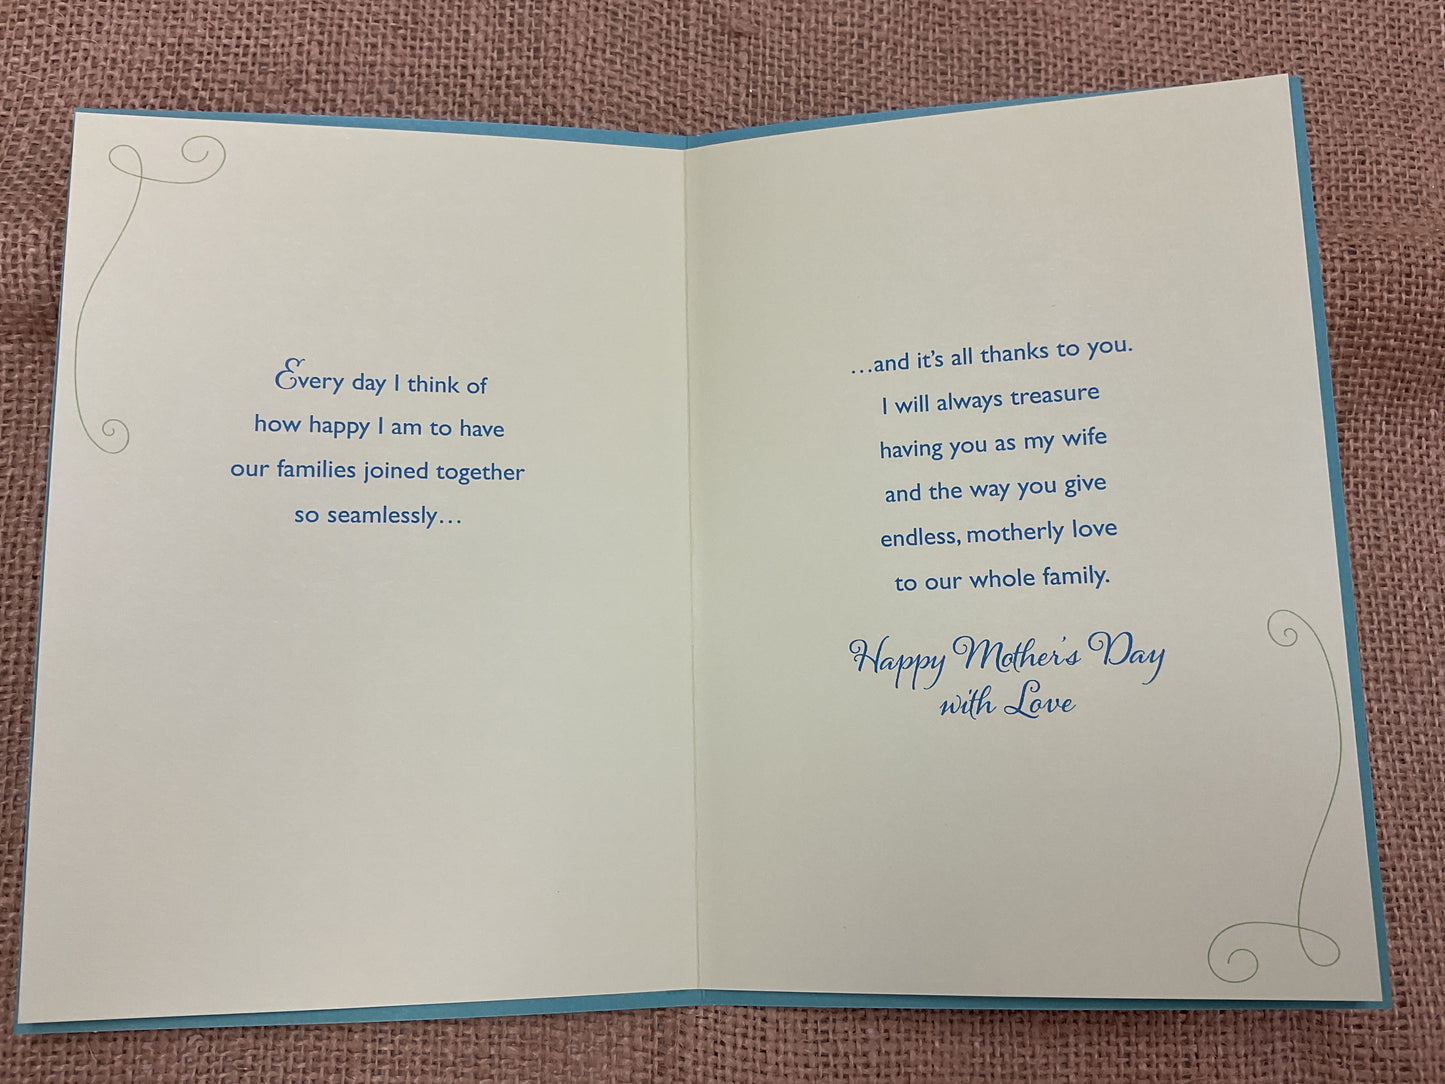 Every day I think of
how happy I am to have
our families joined together
so seamlessly...
...and it's all thanks to you.
I will always treasure
having you as my wife
and the way you give
endless, motherly love
to our whole family.
Happy Mother's Day
with Love